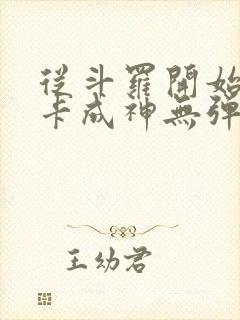 從斗羅開始
卡成神無彈
王幼君